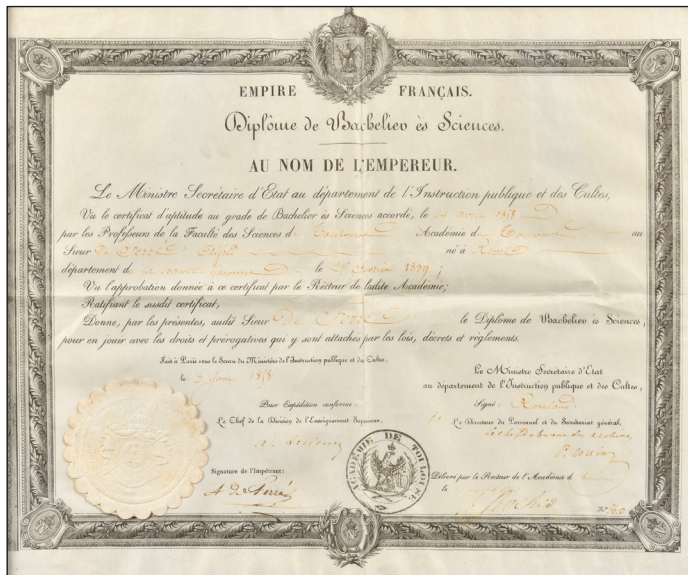 EMPIRE FRANÇAIS.
Diplôme de Bachelier ès Sciences.
AU NOM DE L'EMPEREUR.
Le Ministre Secrétaire d'Etat au département de l'Instruction publique et des Cultes,
Vu le certificat d'aptitude au grade de Bachelier ès Sciences accordé, le avril 1858
par les Professeurs de la Faculté des Sciences de Toulouse Académie de Toulouse au
Sieur De Alfred né à Revel
département de la haute Garonne le 1839;
Vu l'approbation donnée à ce certificat par le Recteur de ladite Académie;
Ratifiant le susdit certificat,
Donne, par les présentes, audit Sieur De le Diplôme de Bachelier ès Sciences,
pour en jouir avec les droits et prérogatives qui y sont attachés par les lois, décrets et règlements.
Fait à Paris sous le Sceau du Ministère de l'Instruction publique et des Cultes,
le Juin 1858
Pour Expédition conforme:
Le Chef de la Division de l'Enseignement Supérieur,
Signature de l'Impétrant:
Le Ministre Secrétaire d'Etat
au département de l'Instruction publique et des Cultes,
Signé: Rouland
Le Directeur du Personnel et du Secrétariat général,
ACADÉMIE DE TOULOUSE
Délivré par le Recteur de l'Académie d
le
N°